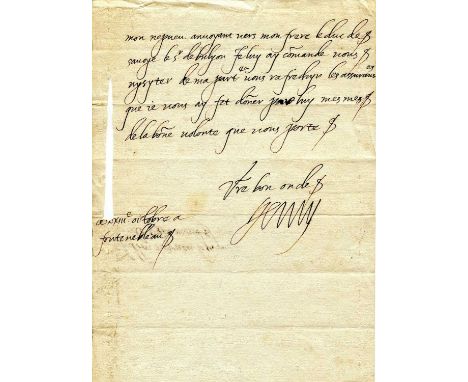 mon nepveu anvoyant vers mon frere le duc de
savoye le Sr de bulyon Je luy ay comande vous
vysyter de ma part vous rafrechyr les assurances
que je vous ay fet doner par luy mesmes
de la bone volonte que vous porte
Vre bon oncle
Henry
octobre a
fontenebleau